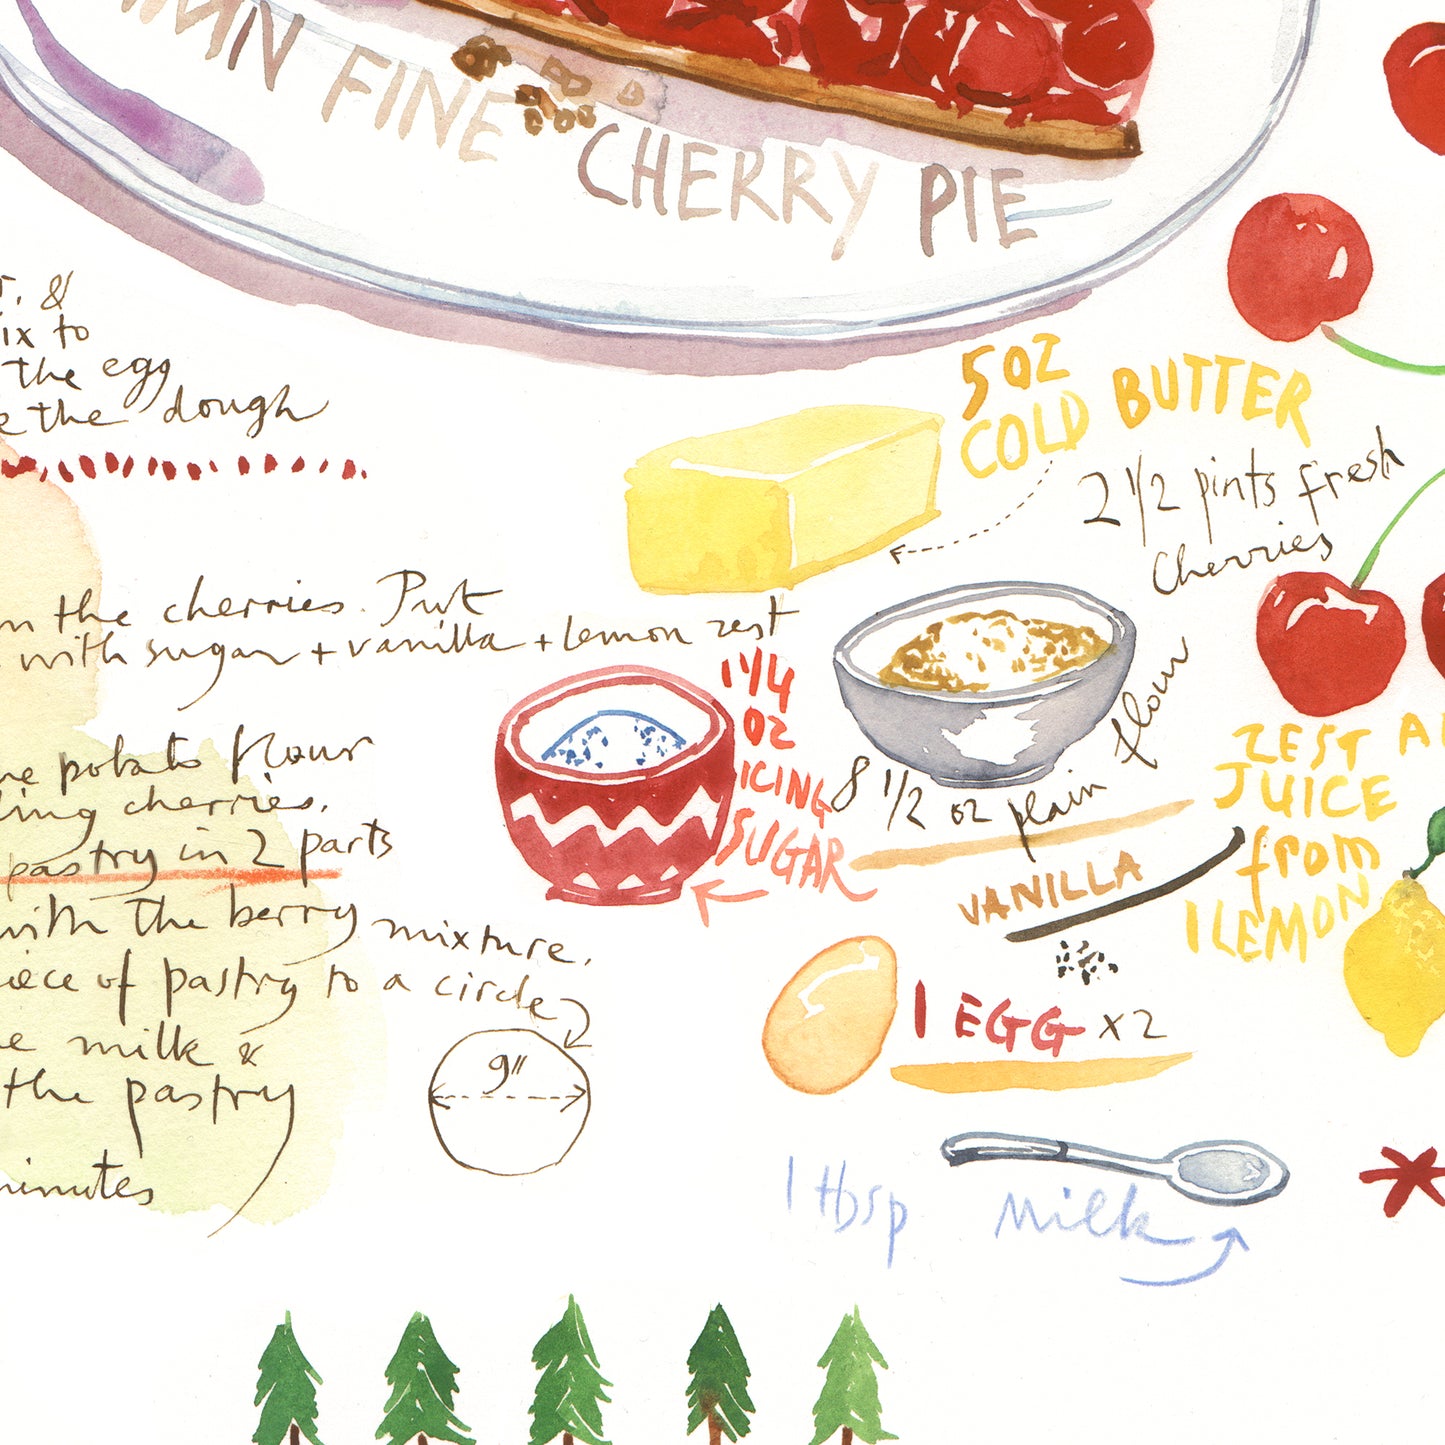 FINE CHERRY PIE
&
to
the egg
the dough
the cherries. Put
with sugar + vanilla + lemon zest
potato flour
cherries.
pastry in 2 parts
with the berry mixture.
of pastry to a circle
9"
milk &
the pastry
minutes
5 OZ
COLD BUTTER
2 1/2 pints fresh
Cherries
1 1/4
OZ
ICING
SUGAR
8 1/2 oz plain flour
VANILLA
ZEST
JUICE
from
1 LEMON
1 EGG x2
1 tbsp Milk